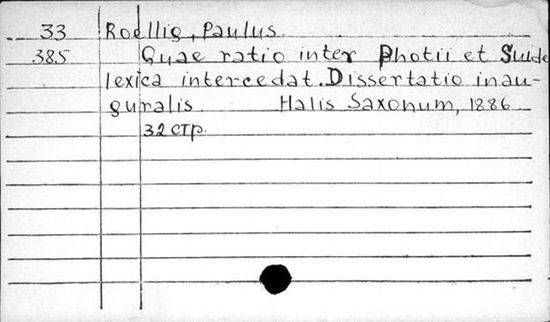 33 Roellig, Paulus.
385 Quae ratio inter Photii et Suidae
lexica intercedat. Dissertatio inau-
guralis. Halis Saxonum, 1886
32 стр.